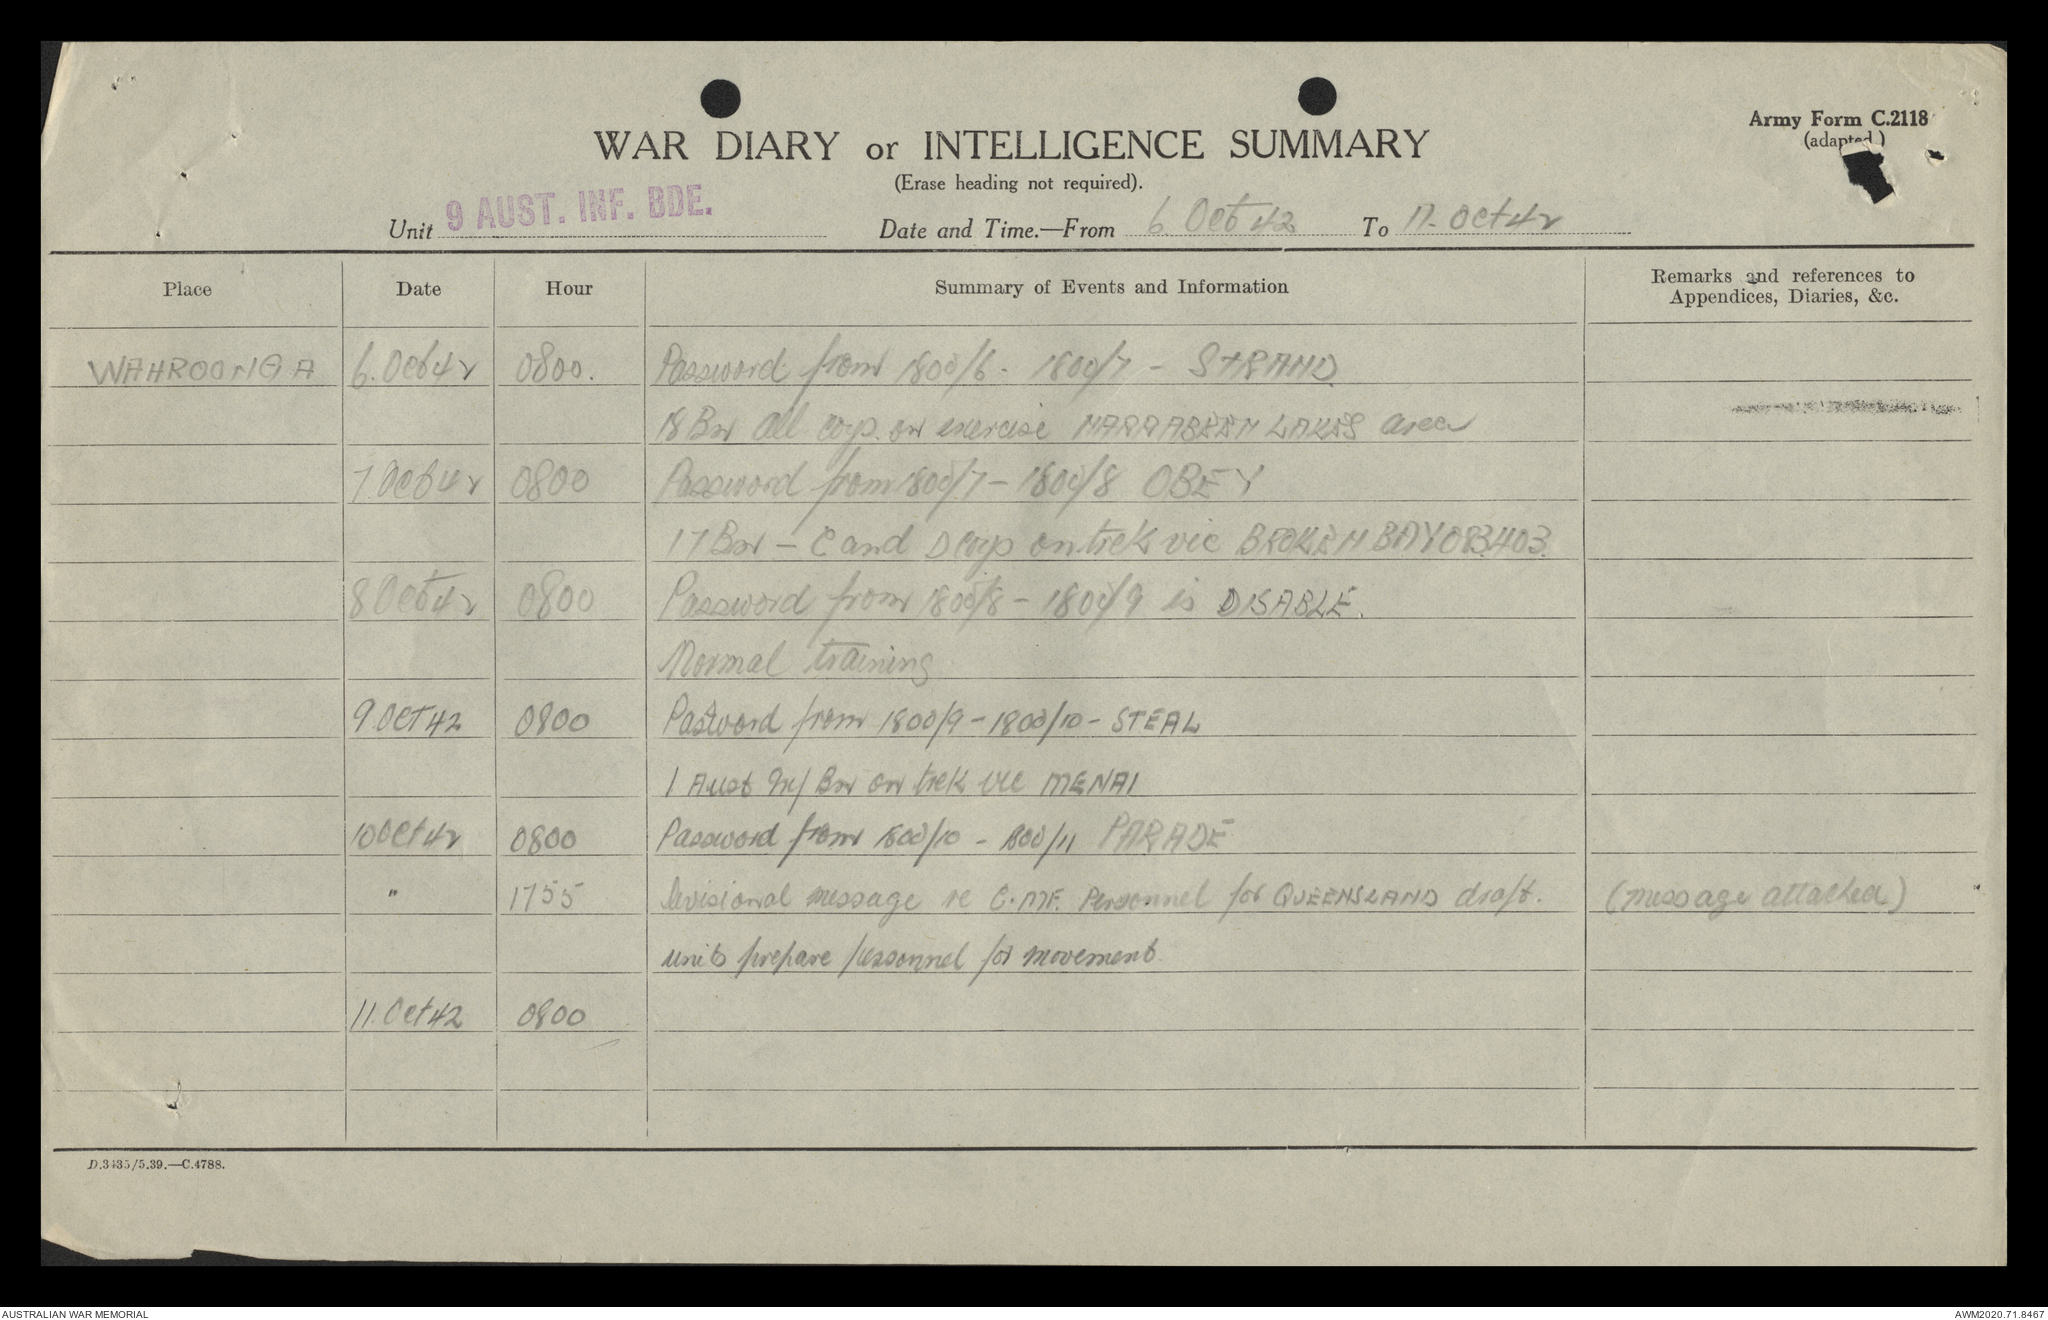 Army Form C.2118
(adapted.)
WAR DIARY or INTELLIGENCE SUMMARY
(Erase heading not required).
Unit 9 AUST. INF. BDE. Date and Time.—From 6 Oct 42 To 11. Oct 42
Place Date Hour Summary of Events and Information Remarks and references to
Appendices, Diaries, &c.
WAHROONGA 6.Oct 42 0800. Password from 1800/6 - 1800/7 - STRAND
18 Bn all coys. on exercise NARRABEEN LAKES area
7.Oct 42 0800 Password from 1800/7 - 1800/8 OBEY
17 Bn - C and D Coys on trek vic BROKEN BAY 083403.
8 Oct 42 0800 Password from 1800/8 - 1800/9 is DISABLE.
Normal training
9.Oct 42 0800 Password from 1800/9 - 1800/10 - STEAL
1 Aust M/ Bn on trek vic MENAI
10 Oct 42 0800 Password from 1800/10 - 1800/11 PARADE
" 1755 Divisional message re C.MF. Personnel for QUEENSLAND draft. (Message attached)
units prepare personnel for movement
11.Oct 42 0800
D.3435/5.39.—C.4788.
AUSTRALIAN WAR MEMORIAL AWM2020.71.8467